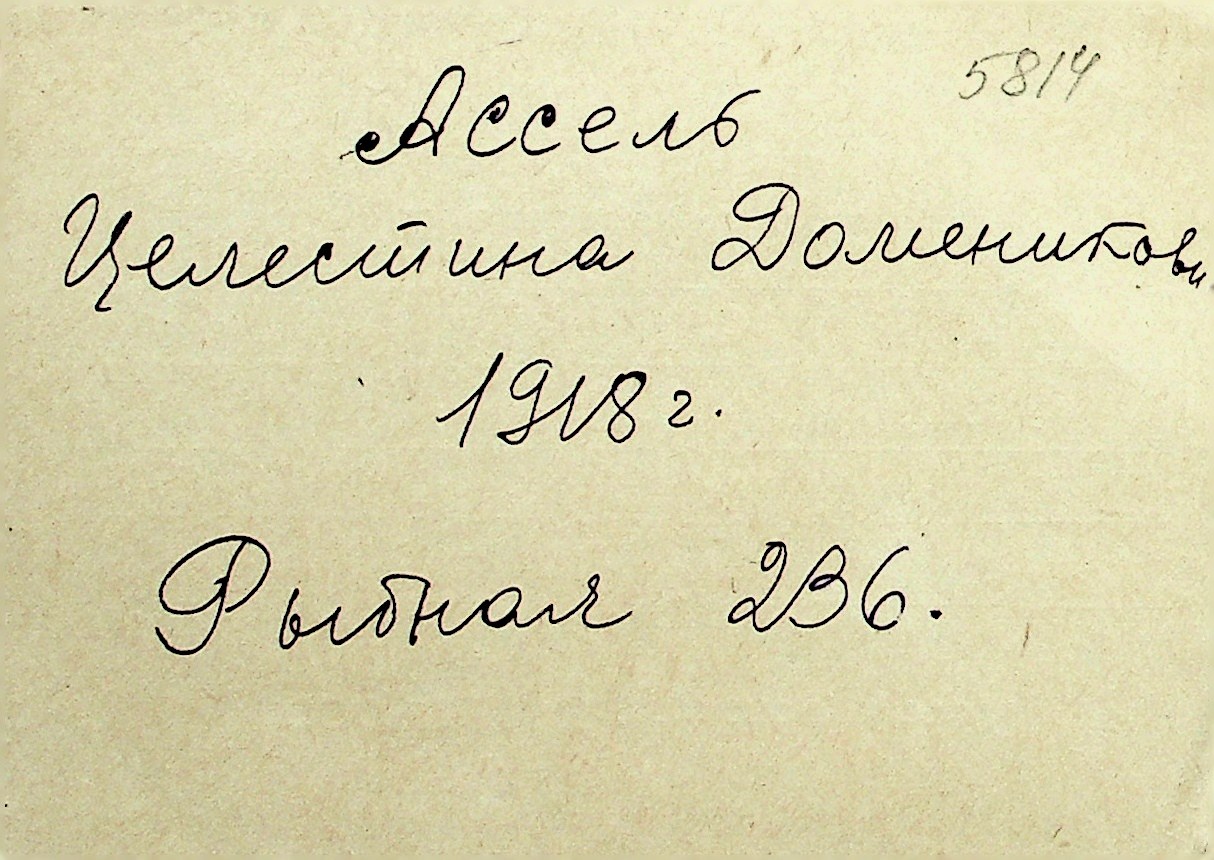 5814
Ассель
Целестина Доменикови
1918 г.
Рыбная 236.